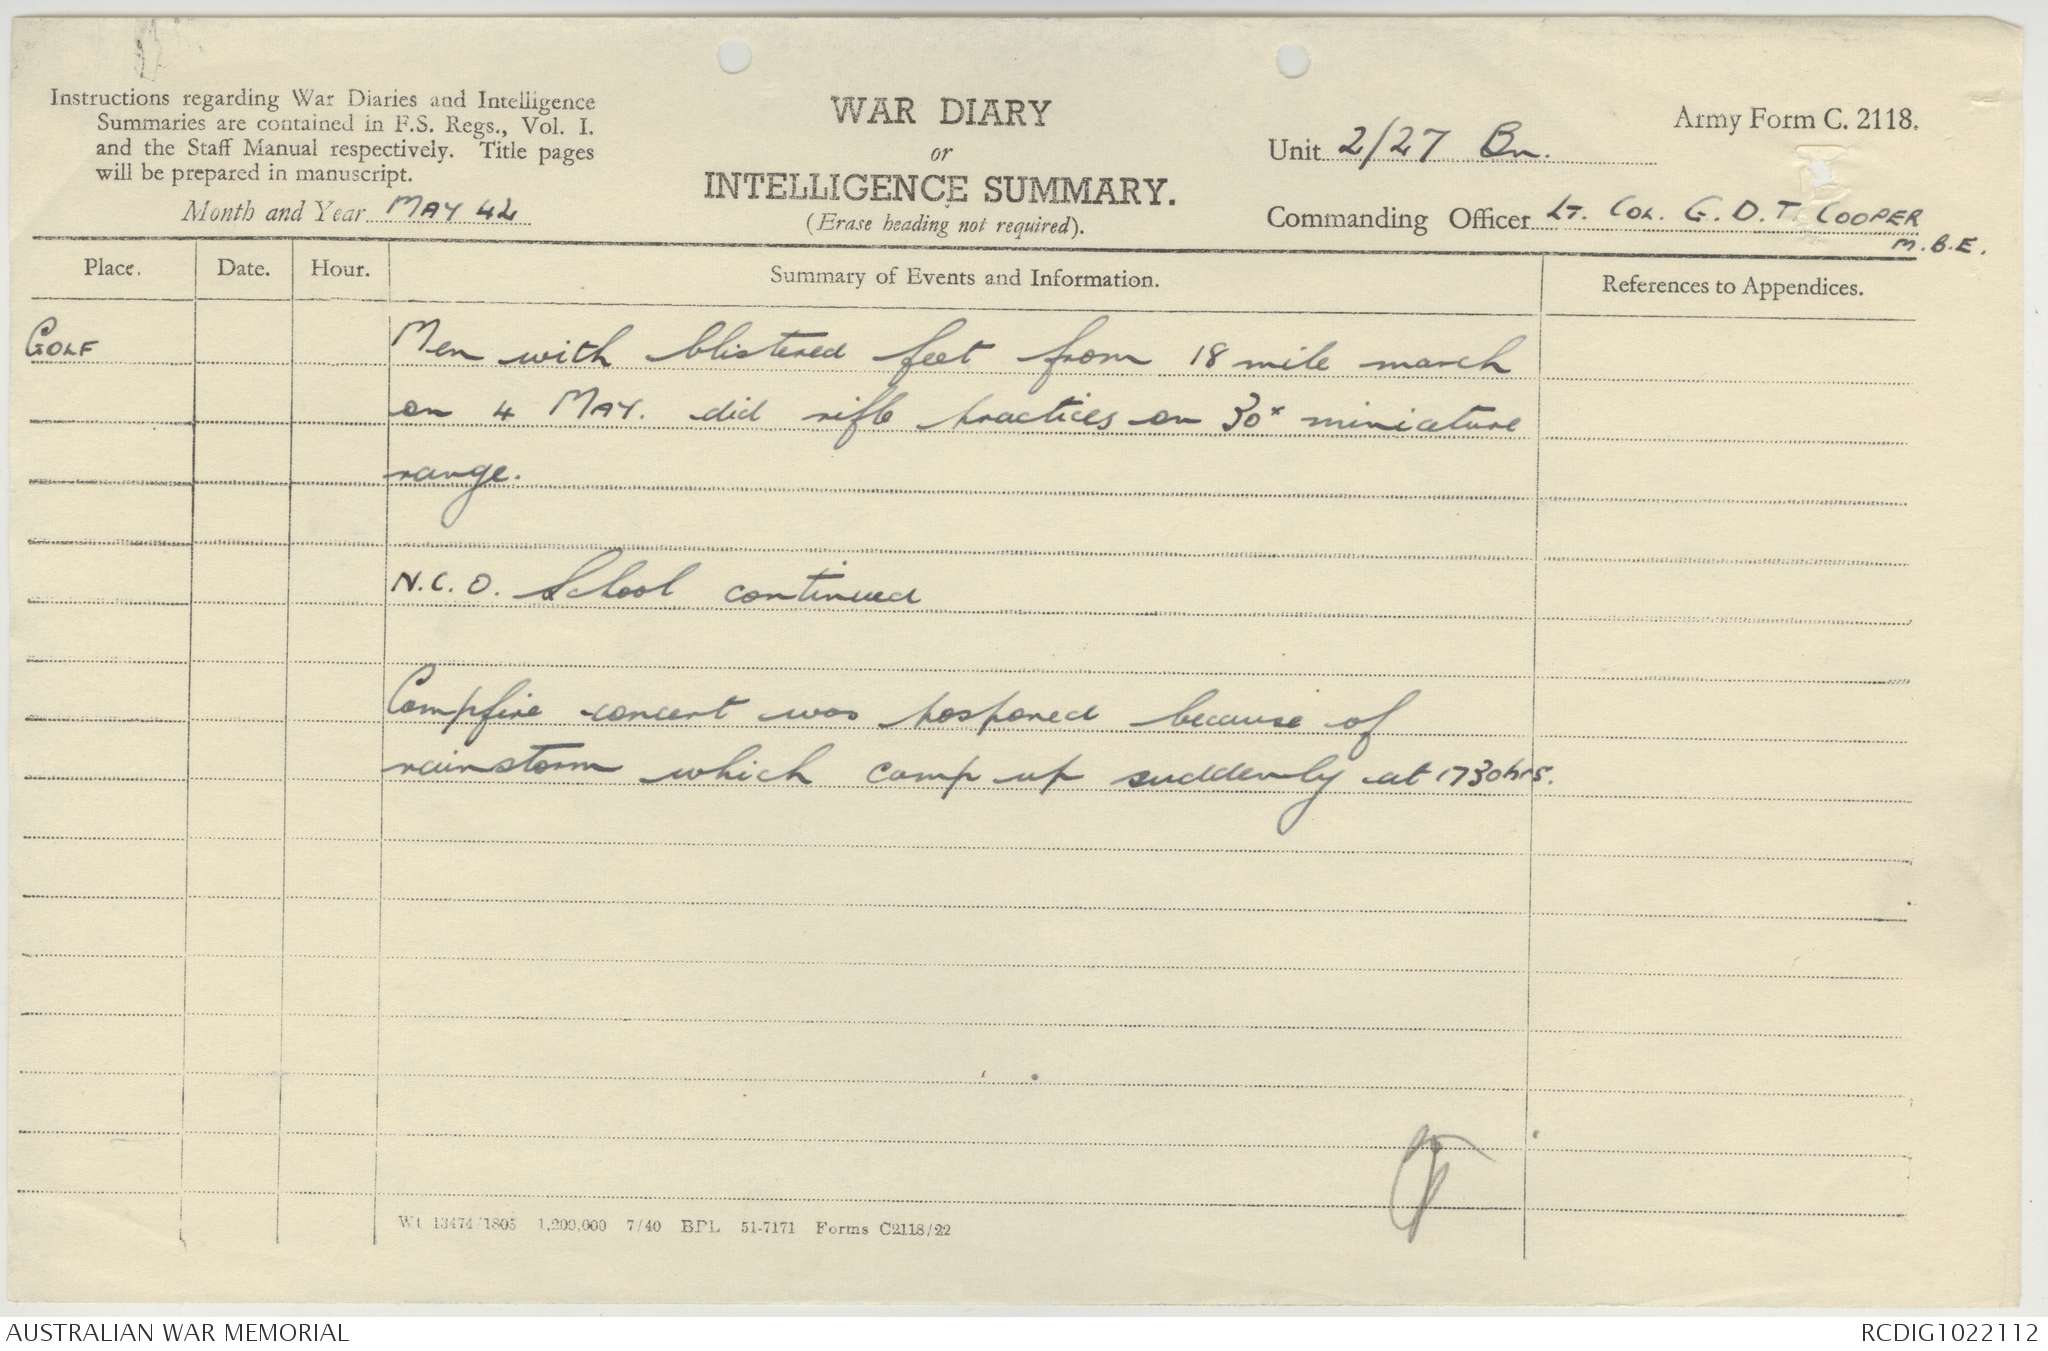 Instructions regarding War Diaries and Intelligence
Summaries are contained in F.S. Regs., Vol. I.
and the Staff Manual respectively. Title pages
will be prepared in manuscript.
Month and Year MAY 42
WAR DIARY
or
INTELLIGENCE SUMMARY.
(Erase heading not required).
Army Form C. 2118.
Unit 2/27 Bn.
Commanding Officer LT. COL. G. D. T. COOPER
M.B.E.
Place. Date. Hour. Summary of Events and Information. References to Appendices.
GOLF Men with blistered feet from 18 mile march
on 4 MAY. did rifle practices on 30x miniature
range.
N.C.O. School continued
Campfire concert was posponed because of
rainstorm which camp up suddenly at 1730hrs.
Wt 13474/1805 1,200,000 7/40 BPL 51-7171 Forms C2118/22
AUSTRALIAN WAR MEMORIAL
RCDIG1022112